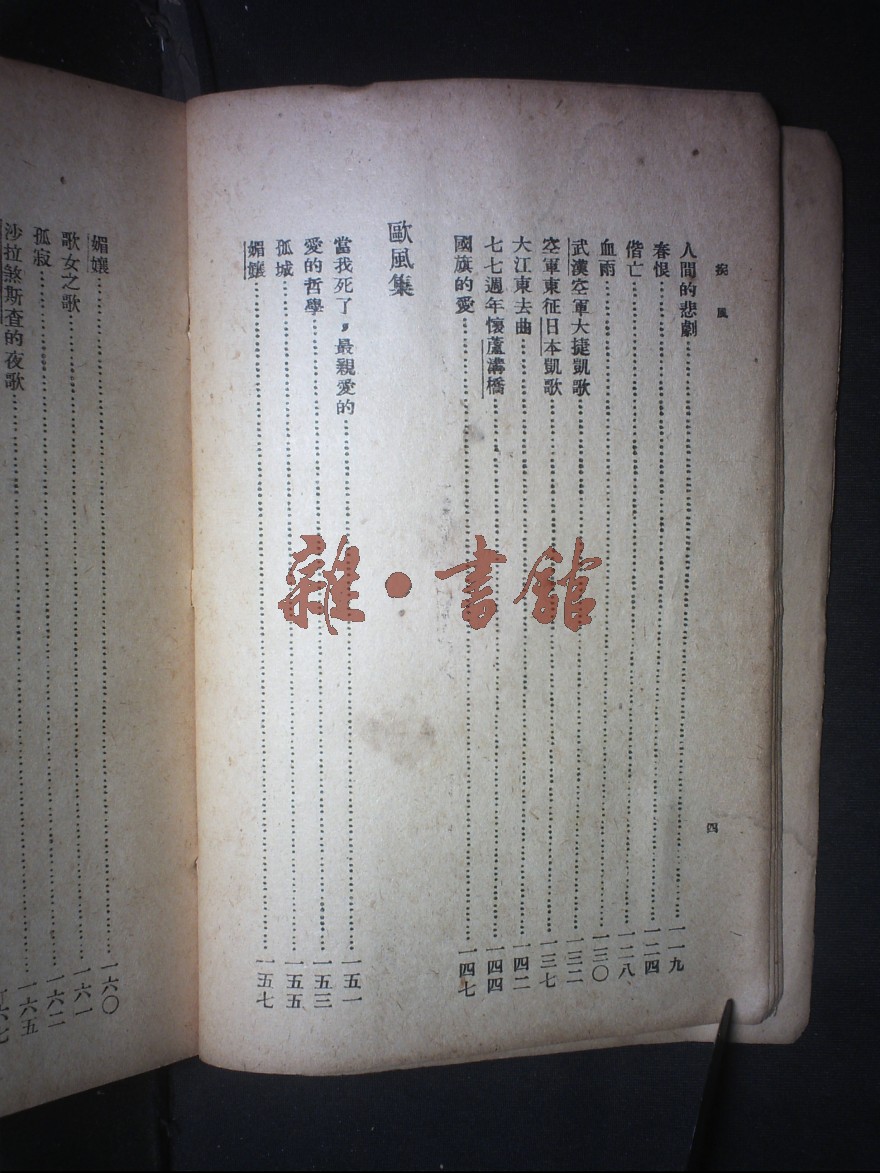 疾風
人間的悲劇……一一九
春恨……一二四
偕亡……一二八
血雨……一三〇
武漢空軍大捷凱歌……一三二
空軍東征日本凱歌……一三七
大江東去曲……一四二
七七週年懷蘆溝橋……一四四
國旗的愛……一四七
歐風集
當我死了，最親愛的……一五一
愛的哲學……一五三
孤城……一五五
媚孃……一五七
四
媚孃……一六〇
歌女之歌……一六一
孤寂……一六二
沙拉煞斯查的夜歌……一六五
雜·書館